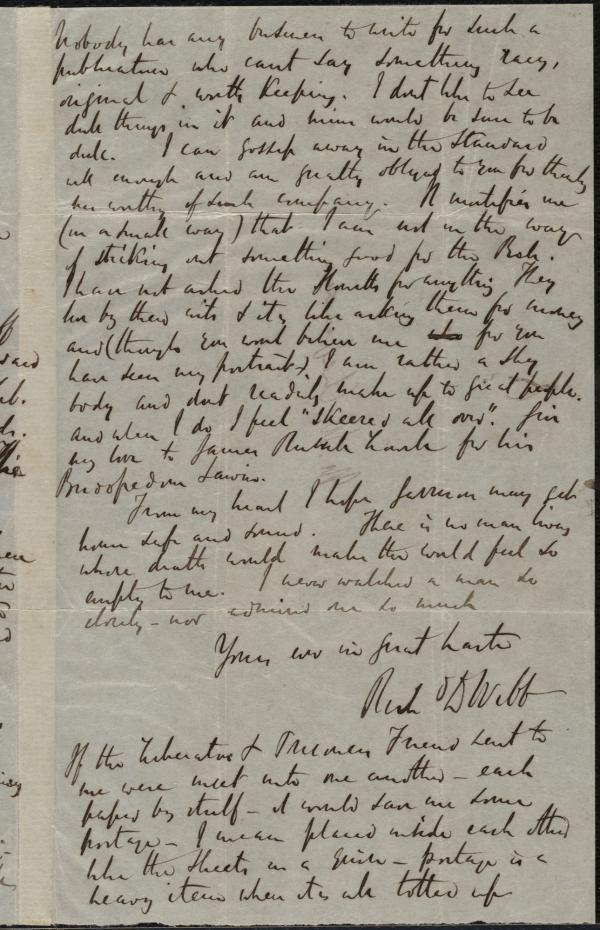 Nobody has any business to write for such a
publication who cant say something racy,
original & worth keeping. I dont like to see
dull things in it and mine would be sure to be
dull. I can gossip away in the Standard
well enough and am greatly obliged to you for thinking
me worthy of such company. It mortifies me
(in a small way) that I am not in the way
of striking out something good for the Bell.
I have not asked the Howitts for anything They
live by their wits & it is like asking them for money
and (though you wont believe me for you
have seen my portrait) I am rather a shy
body and dont readily make up to great people.
and when I do I feel "skeered all over". Give
my love to James Russell Lowell for his
Birdofredom Sawin.
From my heart I hope Garrison may get
home safe and sound. There is no man living
whose death would make the world feel so
empty to me. I never watched a man so
closely - nor admired one so much
Yours ever in great haste
Rich D Webb
If the Liberator & Prisoners Friend sent to
me were inset into one another - each
paper by itself - it would save me some
postage - I mean placed inside each other
like the sheets in a quire - postage is a
heavy item when it is all totted up